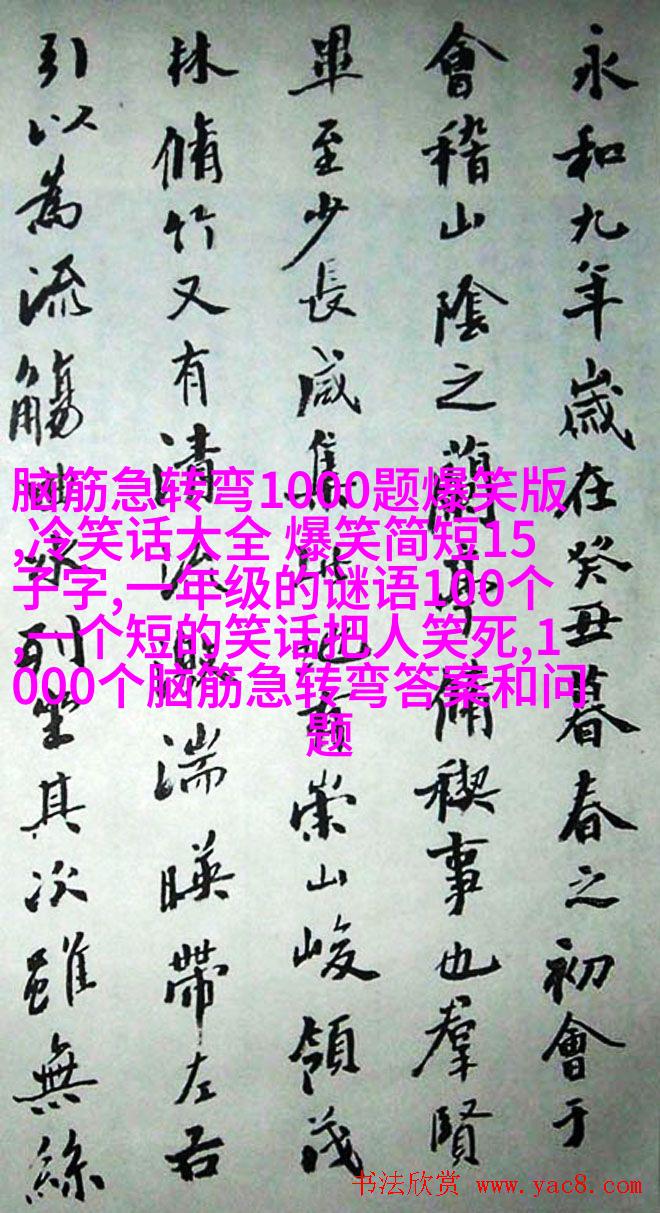 永和九年歲在癸丑暮春之初會于
會稽山陰之蘭亭脩稧事也羣賢
畢至少長咸集此地有崇山峻領茂
林脩竹又有清流激湍暎帶左右
引以為流觴曲水列坐其次雖無絲
脑筋急转弯1000题爆笑版
,冷笑话大全 爆笑简短15
子字,一年级的谜语100个
,一个短的笑话把人笑死,1
000个脑筋急转弯答案和问
题
书法欣赏 www.yac8.com